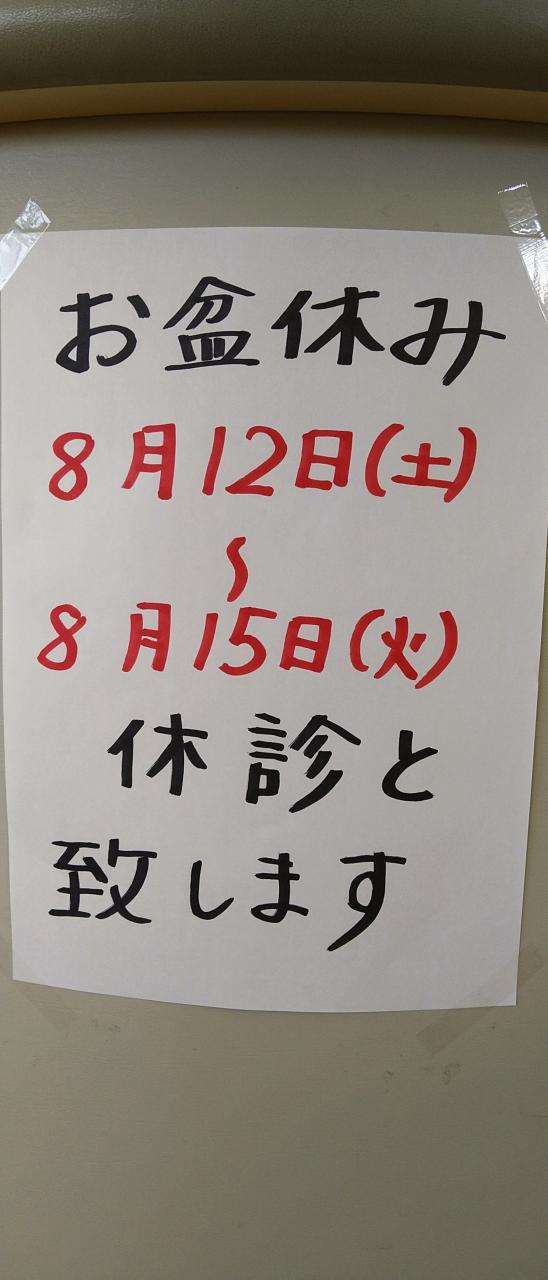 お盆休み
8月12日(土)
〜
8月15日(火)
休診と
致します